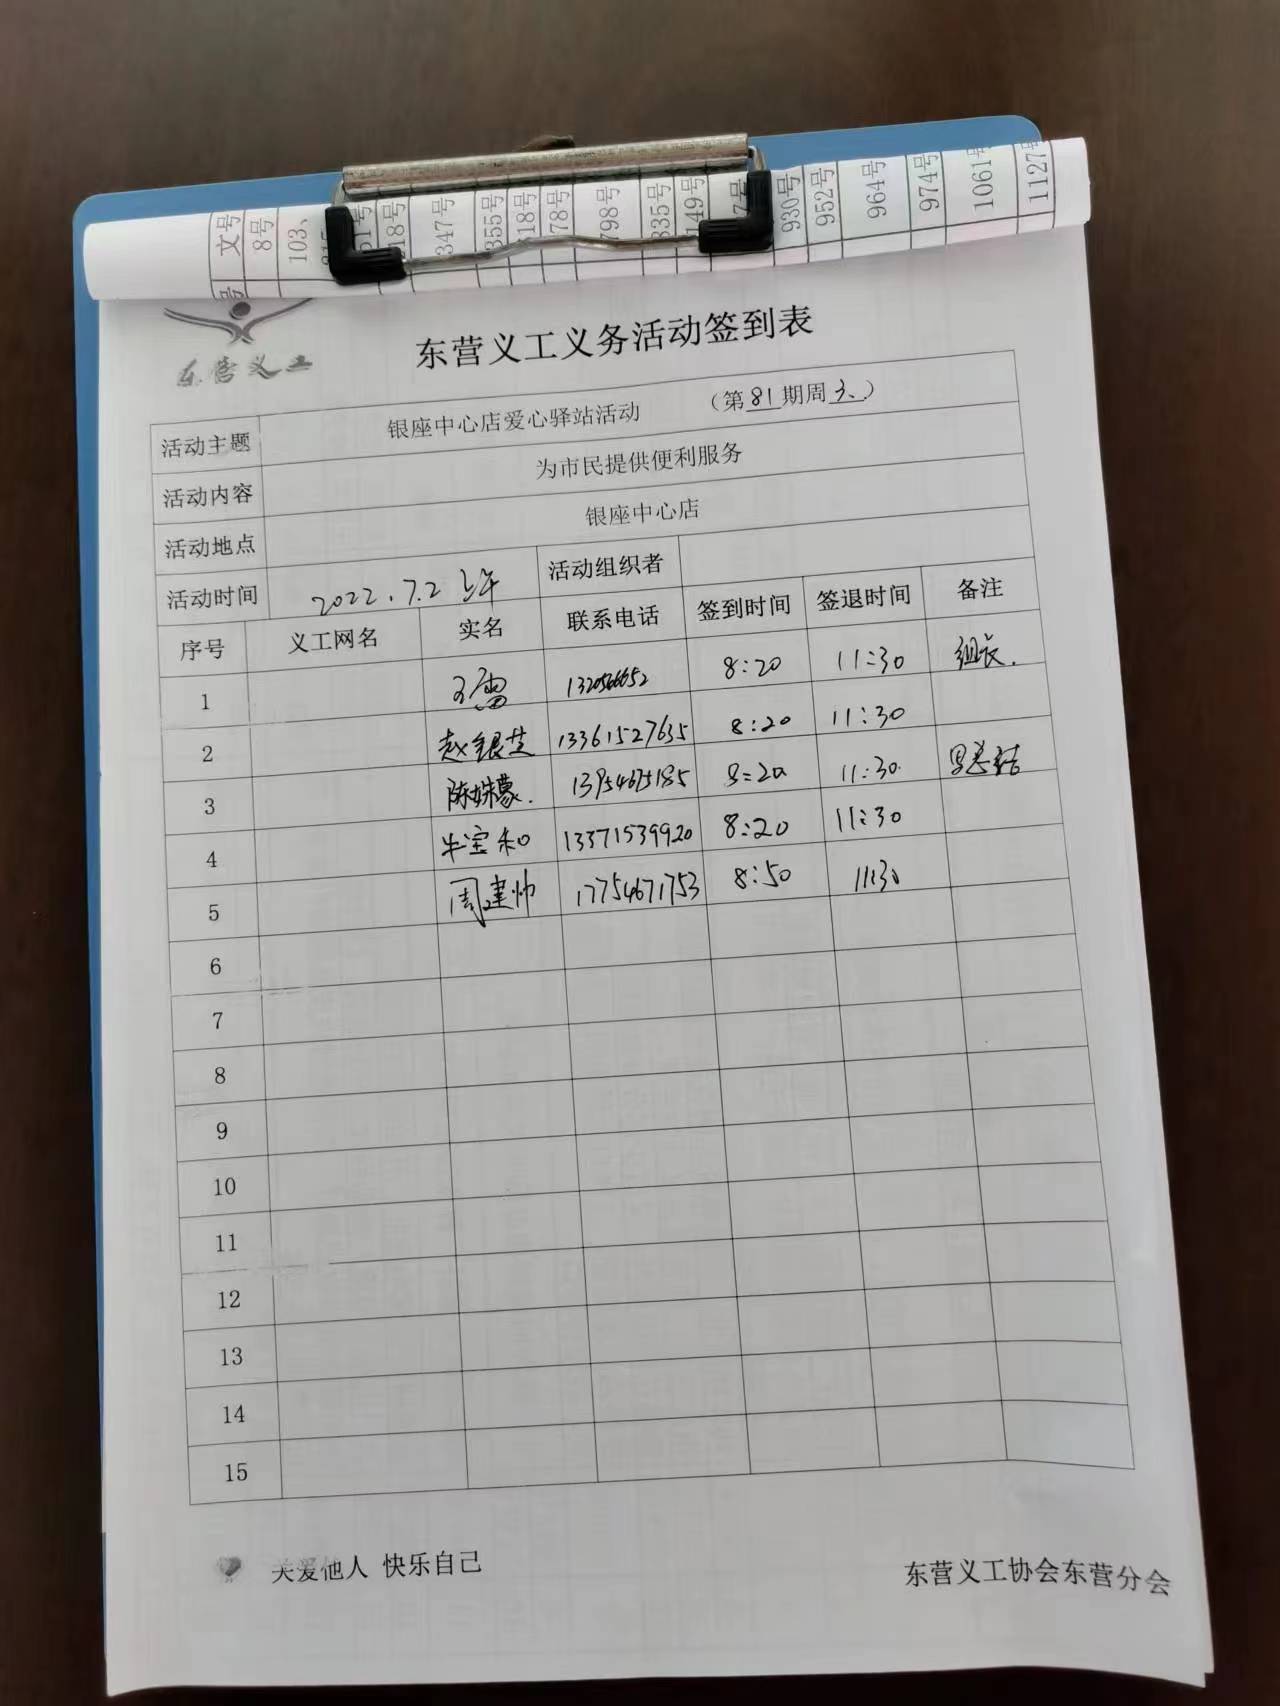 文号 8号 103、 51号 18号 347号 355号 18号 78号 798号 335号 149号 7号 930号 952号 964号 974号 1061号 1127号
东营义工
东营义工义务活动签到表
活动主题 银座中心店爱心驿站活动 （第81期周三、）
活动内容 为市民提供便利服务
活动地点 银座中心店
活动时间 2022.7.2 上午 活动组织者
序号 义工网名 实名 联系电话 签到时间 签退时间 备注
1 王雷 8:20 11:30 组长.
2 赵银芝 13361527635 8:20 11:30
3 陈姝蒙. 13954675185 8:20 11:30
4 牛宝和 13371539920 8:20 11:30
5 周建帅 17754671753 8:50 11:30
6
7
8
9
10
11
12
13
14
15
关爱他人 快乐自己
东营义工协会东营分会